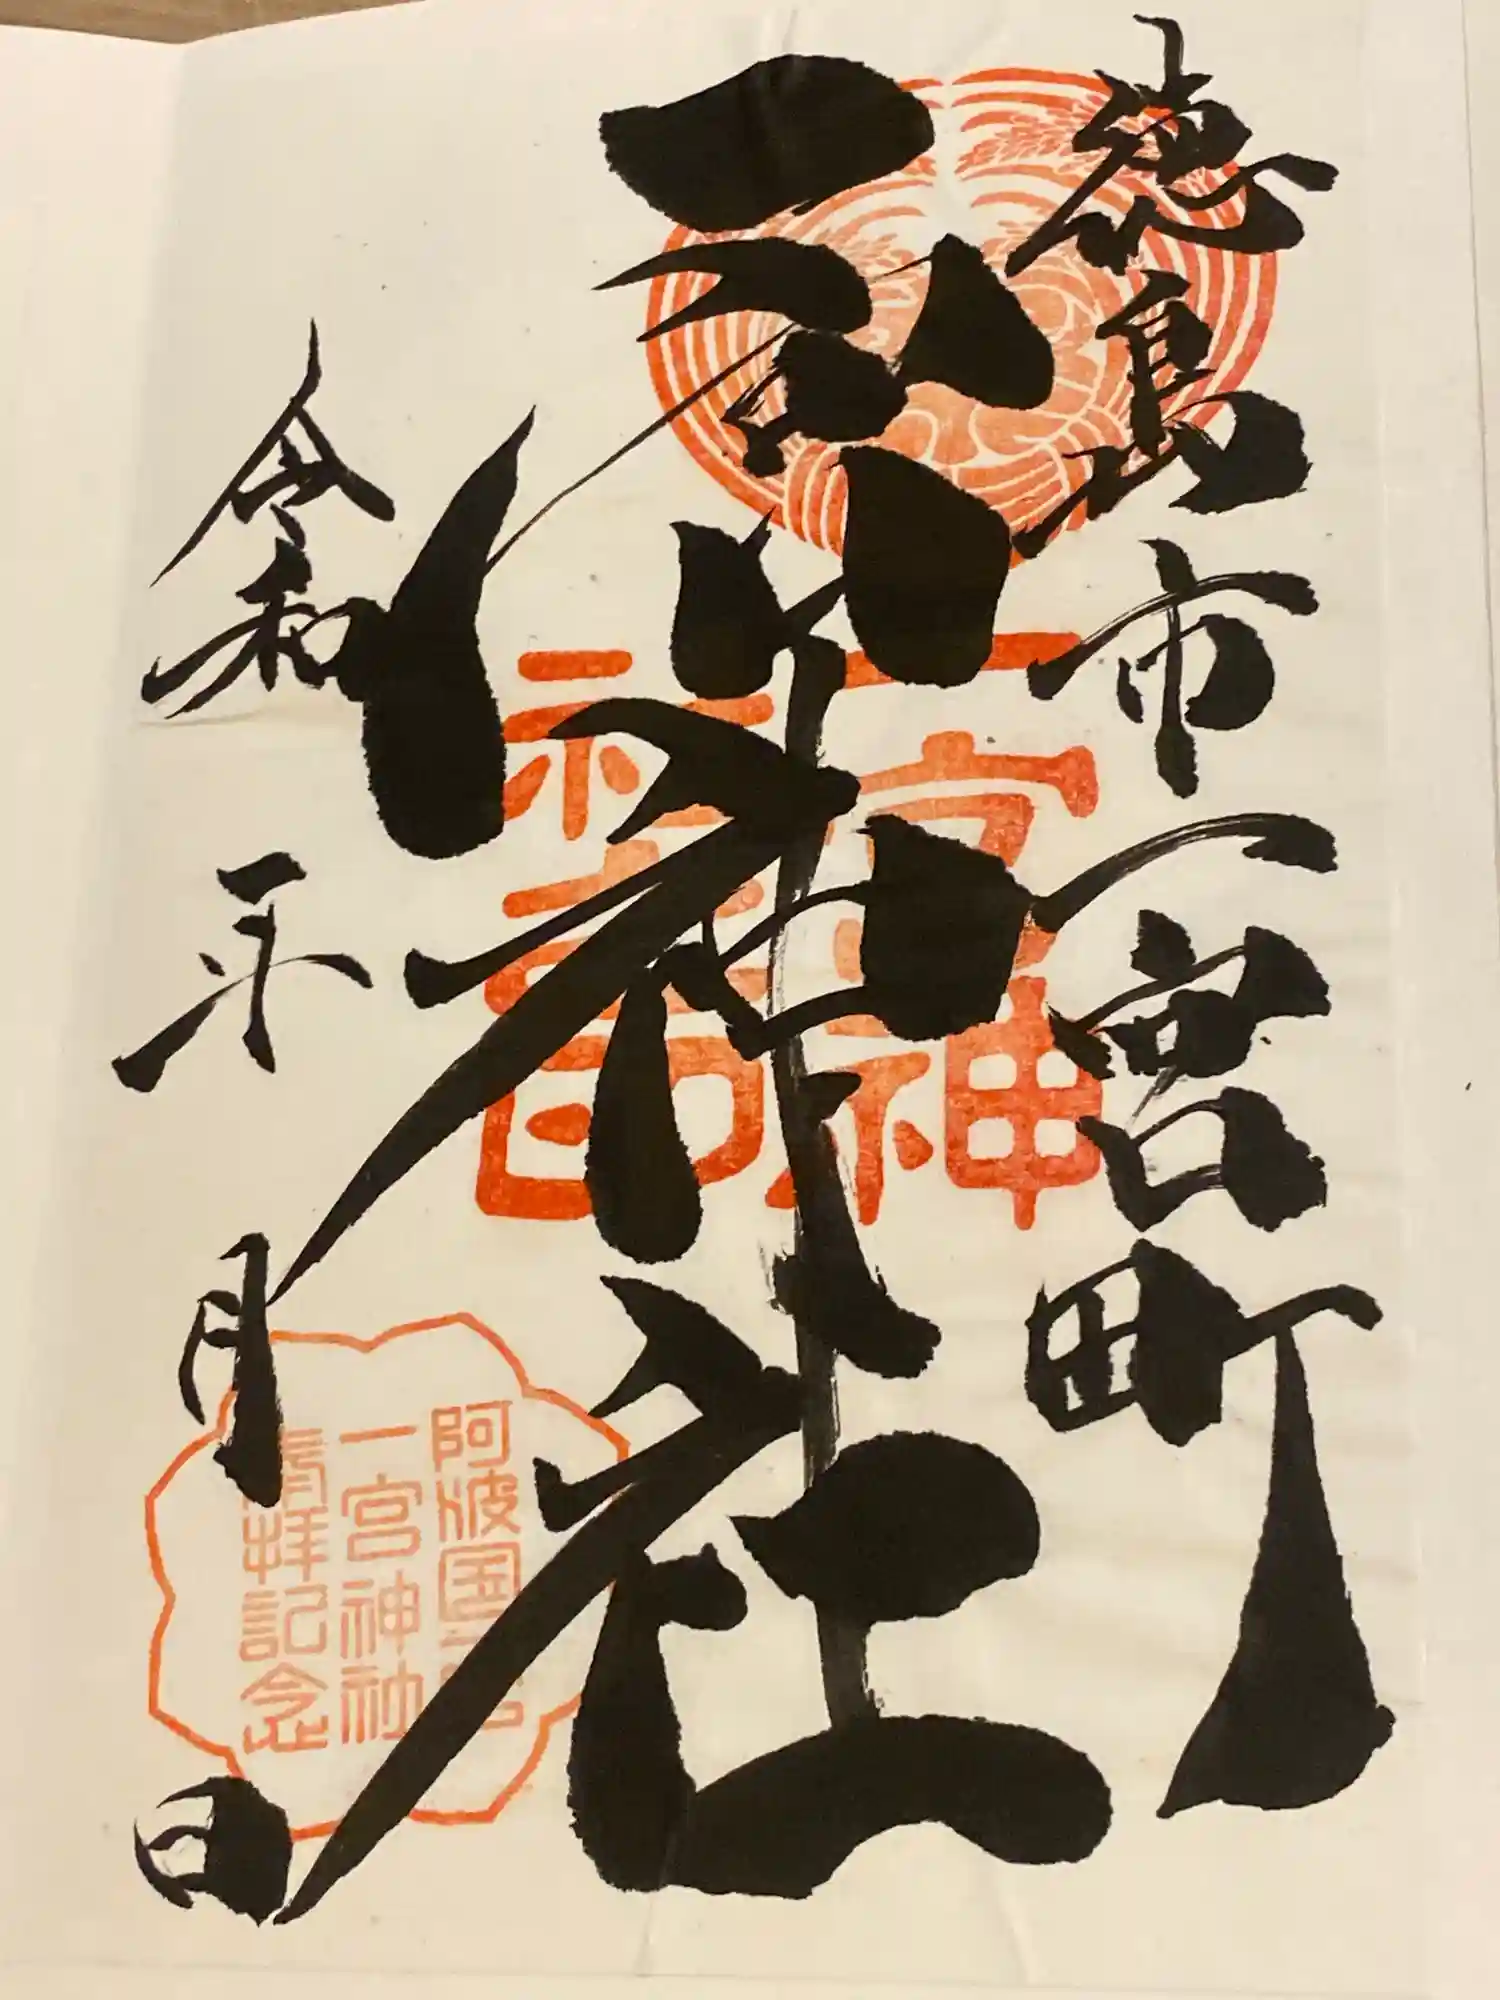 徳島市一宮町
一宮神社
令和 年 月 日
一宮神
阿波国一宮
一宮神社
参拝記念